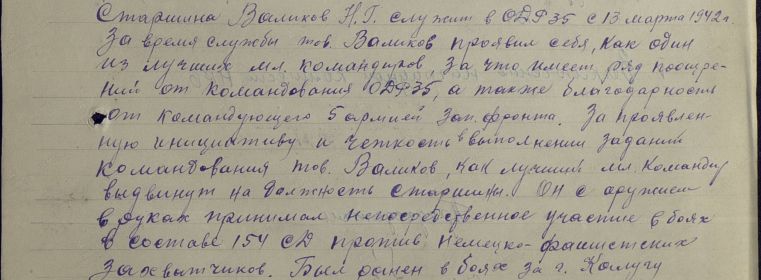 Старшина Валиков Н.Г. служит в ОДФ 35 с 13 марта 1942 г.
За время службы тов. Валиков проявил себя, как один
из лучших мл. командиров за что имеет ряд поощре-
ний от командования ОДФ 35, а также благодарность
от командующего 5 армией Зап. фронта. За проявлен-
ную инициативу и четкость в выполнении заданий
командования тов. Валиков, как лучший мл. командир
выдвинут на должность старшины. Он с оружием
в руках принимал непосредственное участие в боях
в составе 154 СД против немецко-фашистских
захватчиков. Был ранен в боях за г. Калугу